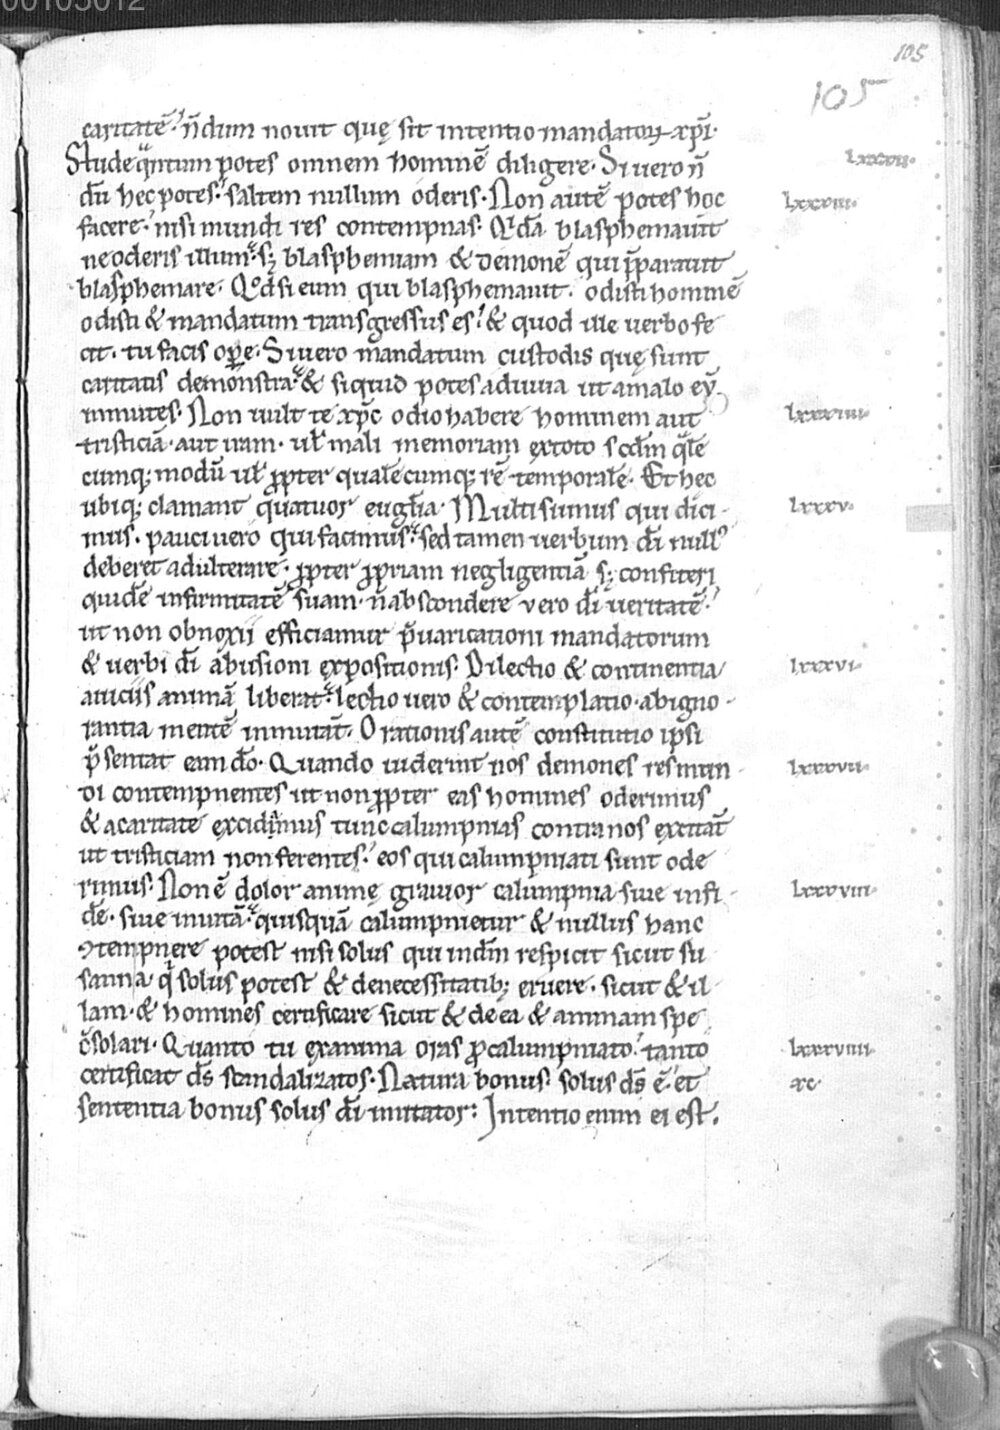 00105012
105
105
caritatē· n̄dum nouit quę sit intentio mandatoꝝ xp̄i·
Stude q̈ntum potes omnem hominē diligere· Si uero n̄
lxxxii·
dū hec potes· saltem nullum oderis· Non autē potes hoc
lxxxiii·
facere· nisi mundi res contempnas· Qͥdā blasphemauit
ne oderis illum· sꝫ blasphemiam & demonē qui p̄parauit
blasphemare· Qd̓ si eum qui blasphemauit· odisti hominē
odisti & mandatum transgressus es· & quod ille uerbo fe
cit· tu facis oꝑe· Si uero mandatum custodis quę sunt
caritatis demonstra· & siquid potes adiuua ut a malo eū
inmutes· Non uult te xp̄c odio habere hominem aut
lxxxiiii·
tristiciā· aut iram· ul̄ mali memoriam ex toto scd̄m qͣle
cumqꝫ modū ul̄ ꝓpter qualecumqꝫ rē temporalē· Et hec
ubiqꝫ clamant quatuor eugl̄ia· Multi sumus qui dici·
lxxxv·
mus· pauci uero qui facimus· sed tamen uerbum dī null᾽
deberet adulterare· ꝓpter ꝓpriam negligentiā sꝫ confiteri
quidē infirmitatē suam· n̄ abscondere vero dī ueritatē·
ut non obnoxii efficiamur p̄uaricationi mandatorum
& uerbi dī abusioni expositionis· Dilectio & continentia
lxxxvi·
a uiciis animā liberat· lectio uero & contemplatio· ab igno·
rantia mentē inmutat̄· Orationis autē constitutio ipsi
p̄sentat eam dō· Quando uiderint nos demones res mun·
lxxxvii·
di contempnentes ut non ꝓpter eas homines oderimus
& a caritate excidamus tunc calumpnias contra nos excitāt
ut tristiciam non ferentes· eos qui calumpniati sunt ode
rimus· Non ē dolor animę grauior calumpnia siue in fi·
lxxxviii·
de· siue in uitā· quisquā calumpnietur & nullus hanc
ꝯtempnere potest nisi solus qui in dm̄ respicit sicut su
sanna· qͥ solus potest & de necessitatibꝫ eruere· sicut & il·
lam· & homines certificare sicut & de ea & animam spe
c̄solari· Quanto tu ex anima oras ꝓ calumpniato· tanto
lxxxviiii·
certificat ds̄ scandalizatos· Natura bonus· solus ds̄ ē· et
xc·
sententia bonus solus dī imitator· Intentio enim ei est·